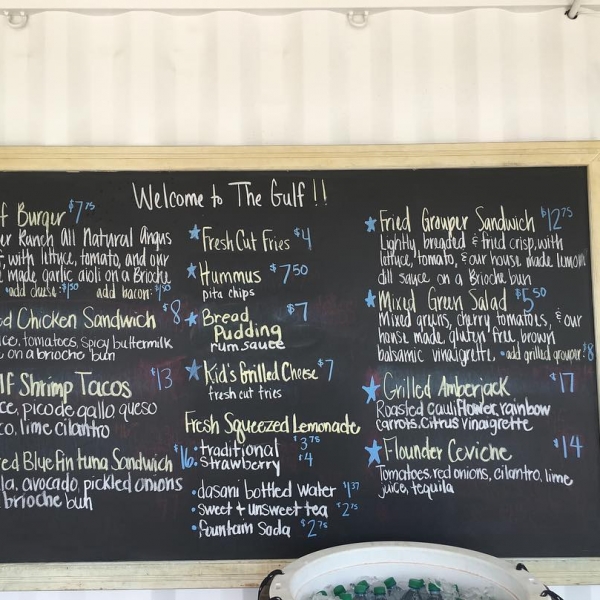 Welcome to The Gulf !!
f Burger $7.75
er Ranch All Natural Angus
f, with lettuce, tomato, and our
made garlic aioli on a Brioche
• add cheese: $1.50 add bacon: $1.50
ed Chicken Sandwich $8
ce, tomatoes, spicy buttermilk
on a brioche bun
lf Shrimp Tacos $13
ce, pico de gallo queso
co, lime cilantro
red Blue Fin tuna Sandwich $16.
la, avocado, pickled onions
brioche bun
Fresh Cut Fries $4
Hummus $7.50
pita chips
Bread Pudding $7
rum sauce
Kid's Grilled Cheese $7
fresh cut fries
Fresh Squeezed Lemonade
• traditional $3.75
• strawberry $4
• dasani bottled water $1.37
• sweet & unsweet tea $2.75
• fountain soda $2.75
Fried Grouper Sandwich $12.75
Lightly breaded & fried crisp, with
lettuce, tomato, & our house made lemon
dill sauce on a Brioche bun
Mixed Green Salad $5.50
Mixed greens, cherry tomatoes, & our
house made gluten free, brown
balsamic vinaigrette. • add grilled grouper: $8
Grilled Amberjack $17
Roasted cauliflower, rainbow
carrots, citrus vinaigrette
Flounder Ceviche $14
Tomatoes, red onions, cilantro, lime
juice, tequila